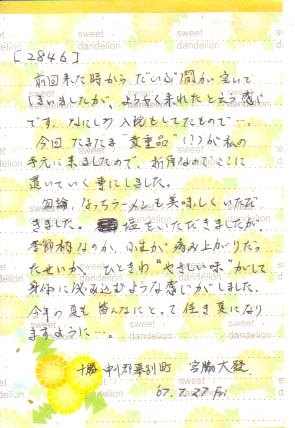 [2846]
前回来た時から だいぶ間が空いて
しまいましたが、ようやく来れたという感じ
です。なにしろ入院をしてたもので…。
今回 たまたま "貴重品"(!?)が私の
手元に来ましたので、折角なのでここに
置いていく事にしました。
勿論、なっちラーメンも美味しくいただ
きました。塩をいただきましたが、
季節柄なのか、小生が病み上がりだっ
たせいか、ひときわ "やさしい味"がして
身体に浸み込むような感じがしました。
今年の夏も皆んなにとって佳き夏になり
ますように…。
十勝 中川郡幕別町 宮脇大發
07.7.27 Fri
sweet dandelion